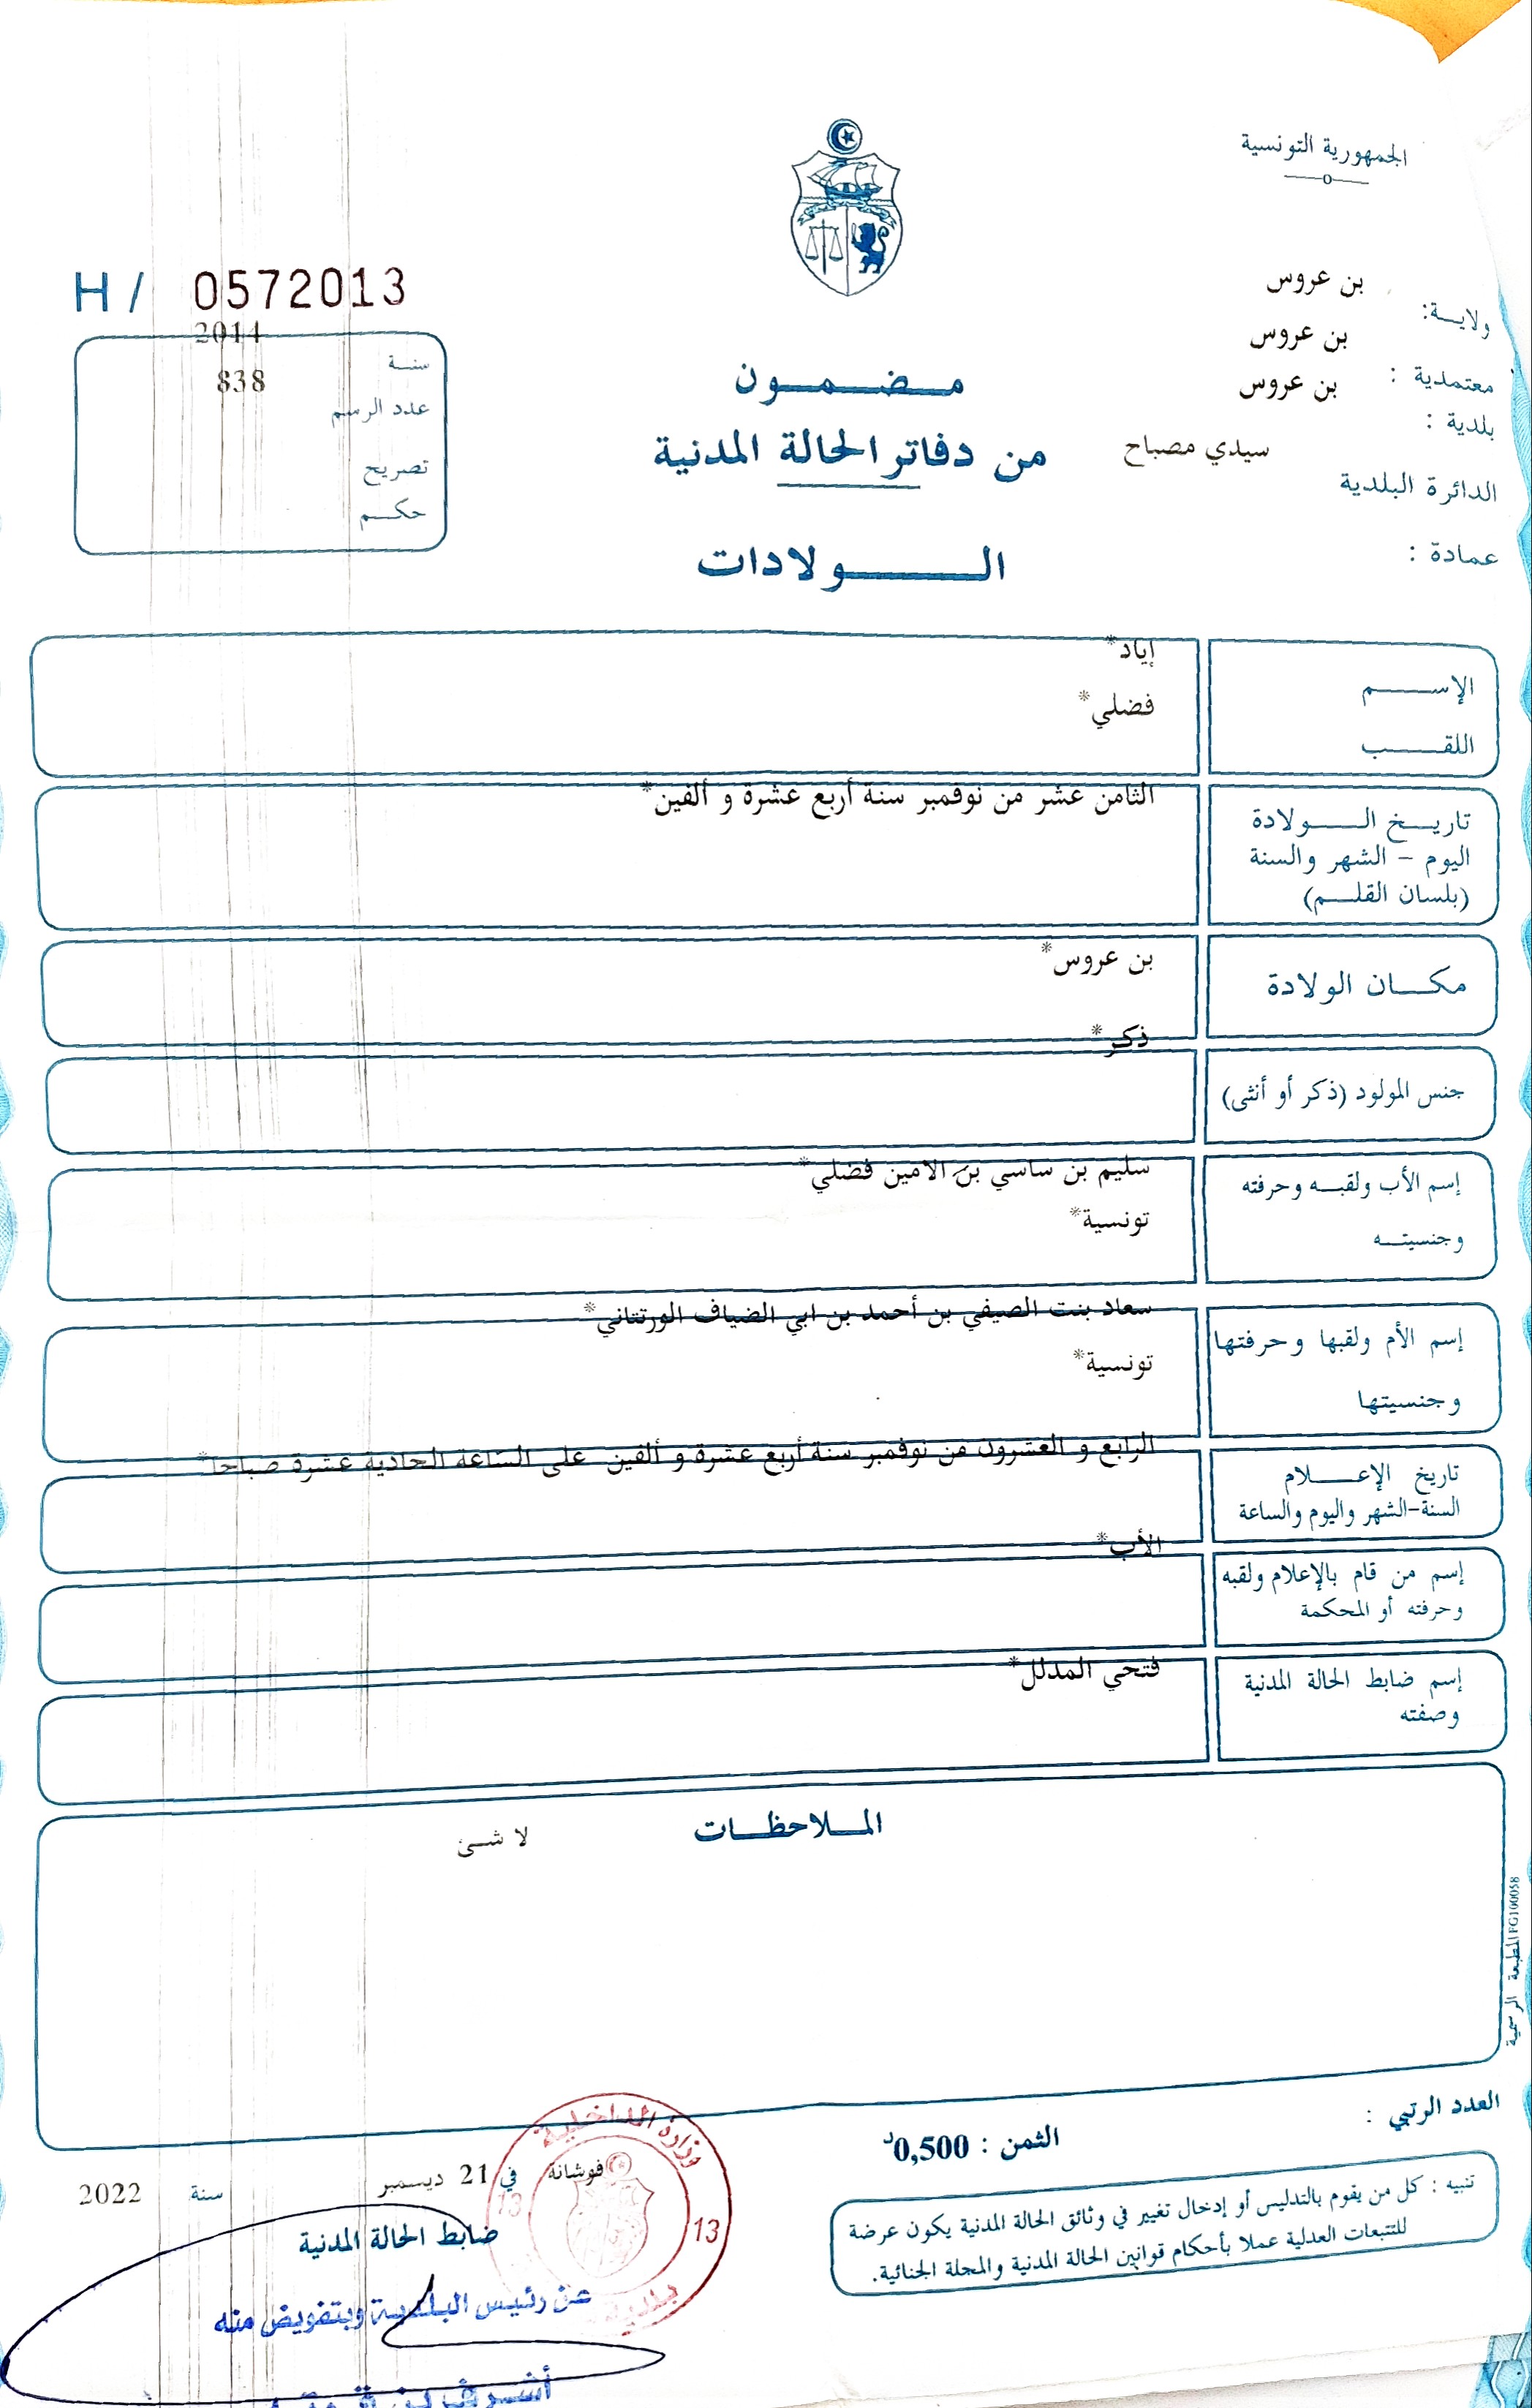 الجمهورية التونسية
ولاية: بن عروس
معتمدية : بن عروس
بلدية : بن عروس
الدائرة البلدية سيدي مصباح
عمادة :
H / 0572013
سنة 2014
عدد الرسم 838
تصريح
حكم
مضمون
من دفاتر الحالة المدنية
الولادات
الإسم إياد*
اللقب فضلي*
تاريخ الولادة الثامن عشر من نوفمبر سنة أربع عشرة و ألفين*
اليوم - الشهر والسنة
(بلسان القلم)
مكان الولادة بن عروس*
جنس المولود (ذكر أو أنثى) ذكر*
إسم الأب ولقبه وحرفته سليم بن ساسي بن الامين فضلي*
وجنسيته تونسية*
إسم الأم ولقبها وحرفتها سعاد بنت الصيفي بن أحمد بن ابي الضياف الورتتاني*
وجنسيتها تونسية*
تاريخ الإعلام الرابع و العشرون من نوفمبر سنة أربع عشرة و ألفين على الساعة الحادية عشرة صباحا*
السنة-الشهر واليوم والساعة
إسم من قام بالإعلام ولقبه الأب*
وحرفته أو المحكمة
إسم ضابط الحالة المدنية فتحي المدلل*
وصفته
الملاحظات
لا شئ
المطبعة الرسمية FG100058
العدد الرتبي :
الثمن : 0,500د
تنبيه : كل من يقوم بالتدليس أو إدخال تغيير في وثائق الحالة المدنية يكون عرضة
للتتبعات العدلية عملا بأحكام قوانين الحالة المدنية والمجلة الجنائية.
فوشانة في 21 ديسمبر سنة 2022
ضابط الحالة المدنية
وزارة الداخلية
13
13
بلدية
عن رئيس البلدية وبتفويض منه
أشرف بن